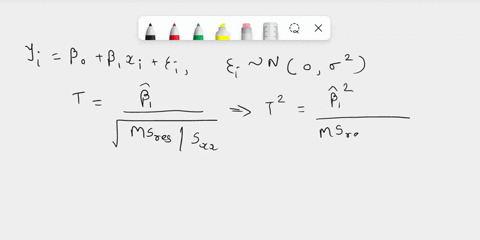 yᵢ = β₀ + β₁xᵢ + εᵢ, εᵢ ~ N(0, σ²)
T = β̂₁ / √(MSres / Sxx) ⇒ T² = β̂₁² / MSre